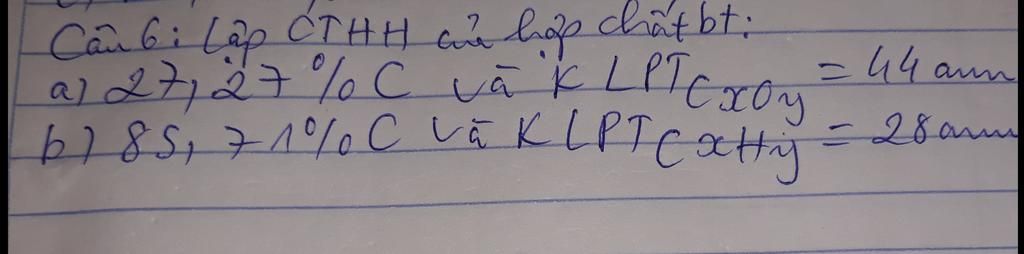 Câu 6: Lập CTHH của hợp chất bt:
a) 27,27%C và KLPT CxOy = 44 amu
b) 85,71%C và KLPT CxHy = 28 amu